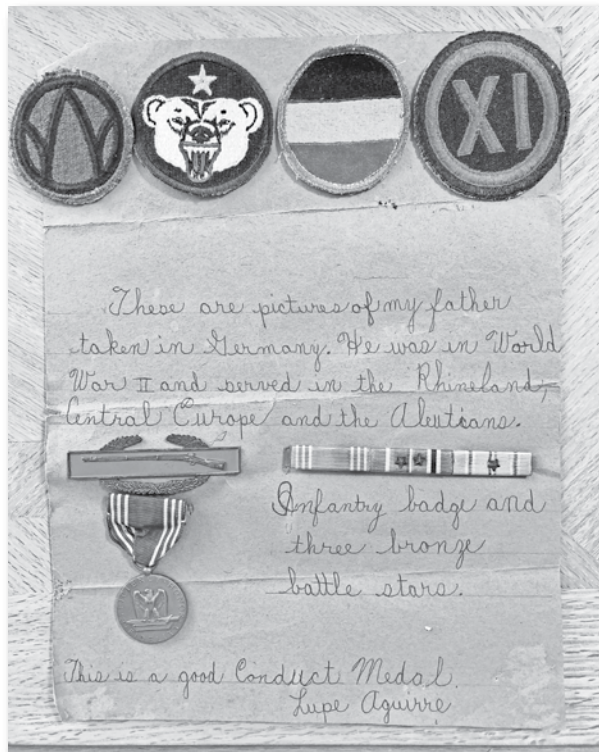 XI
These are pictures of my father
taken in Germany. He was in World
War II and served in the Rhineland,
Central Europe and the Aleutians.
Infantry badge and
three bronze
battle stars.
This is a good Conduct Medal.
Lupe Aguirre